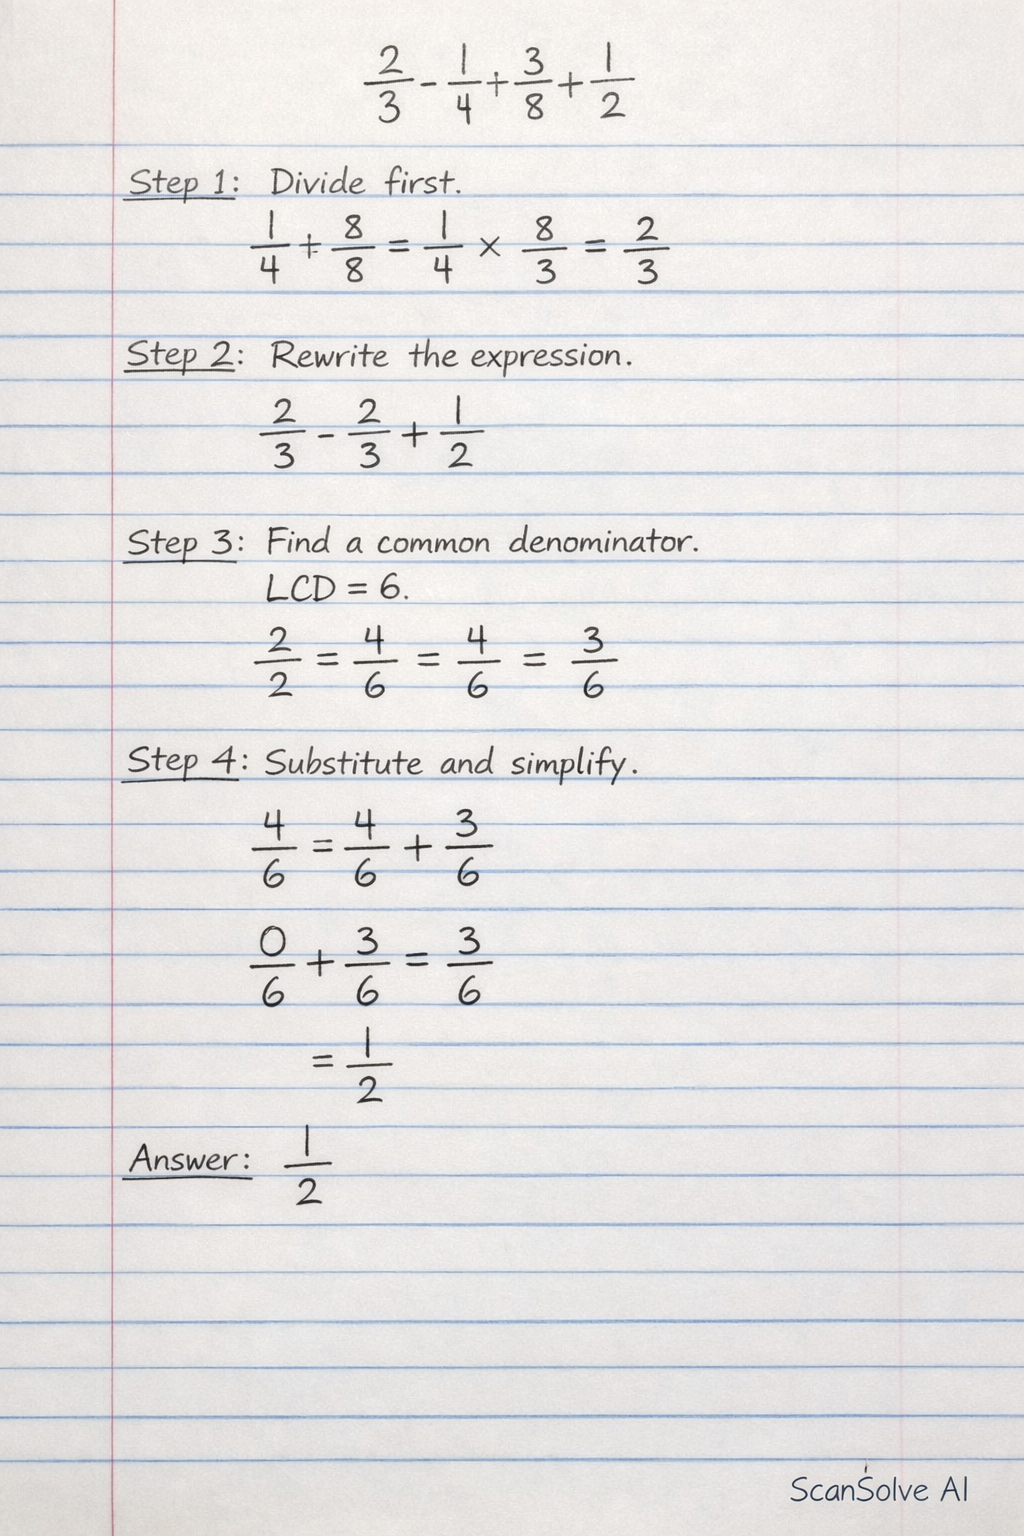 2/3 - 1/4 + 3/8 + 1/2
Step 1: Divide first.
1/4 ÷ 8/8 = 1/4 × 8/3 = 2/3
Step 2: Rewrite the expression.
2/3 - 2/3 + 1/2
Step 3: Find a common denominator.
LCD = 6.
2/2 = 4/6 = 4/6 = 3/6
Step 4: Substitute and simplify.
4/6 = 4/6 + 3/6
0/6 + 3/6 = 3/6
= 1/2
Answer: 1/2
ScanSolve AI